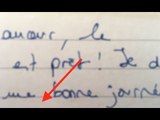 amour, le
est prêt ! Je d
une bonne journé